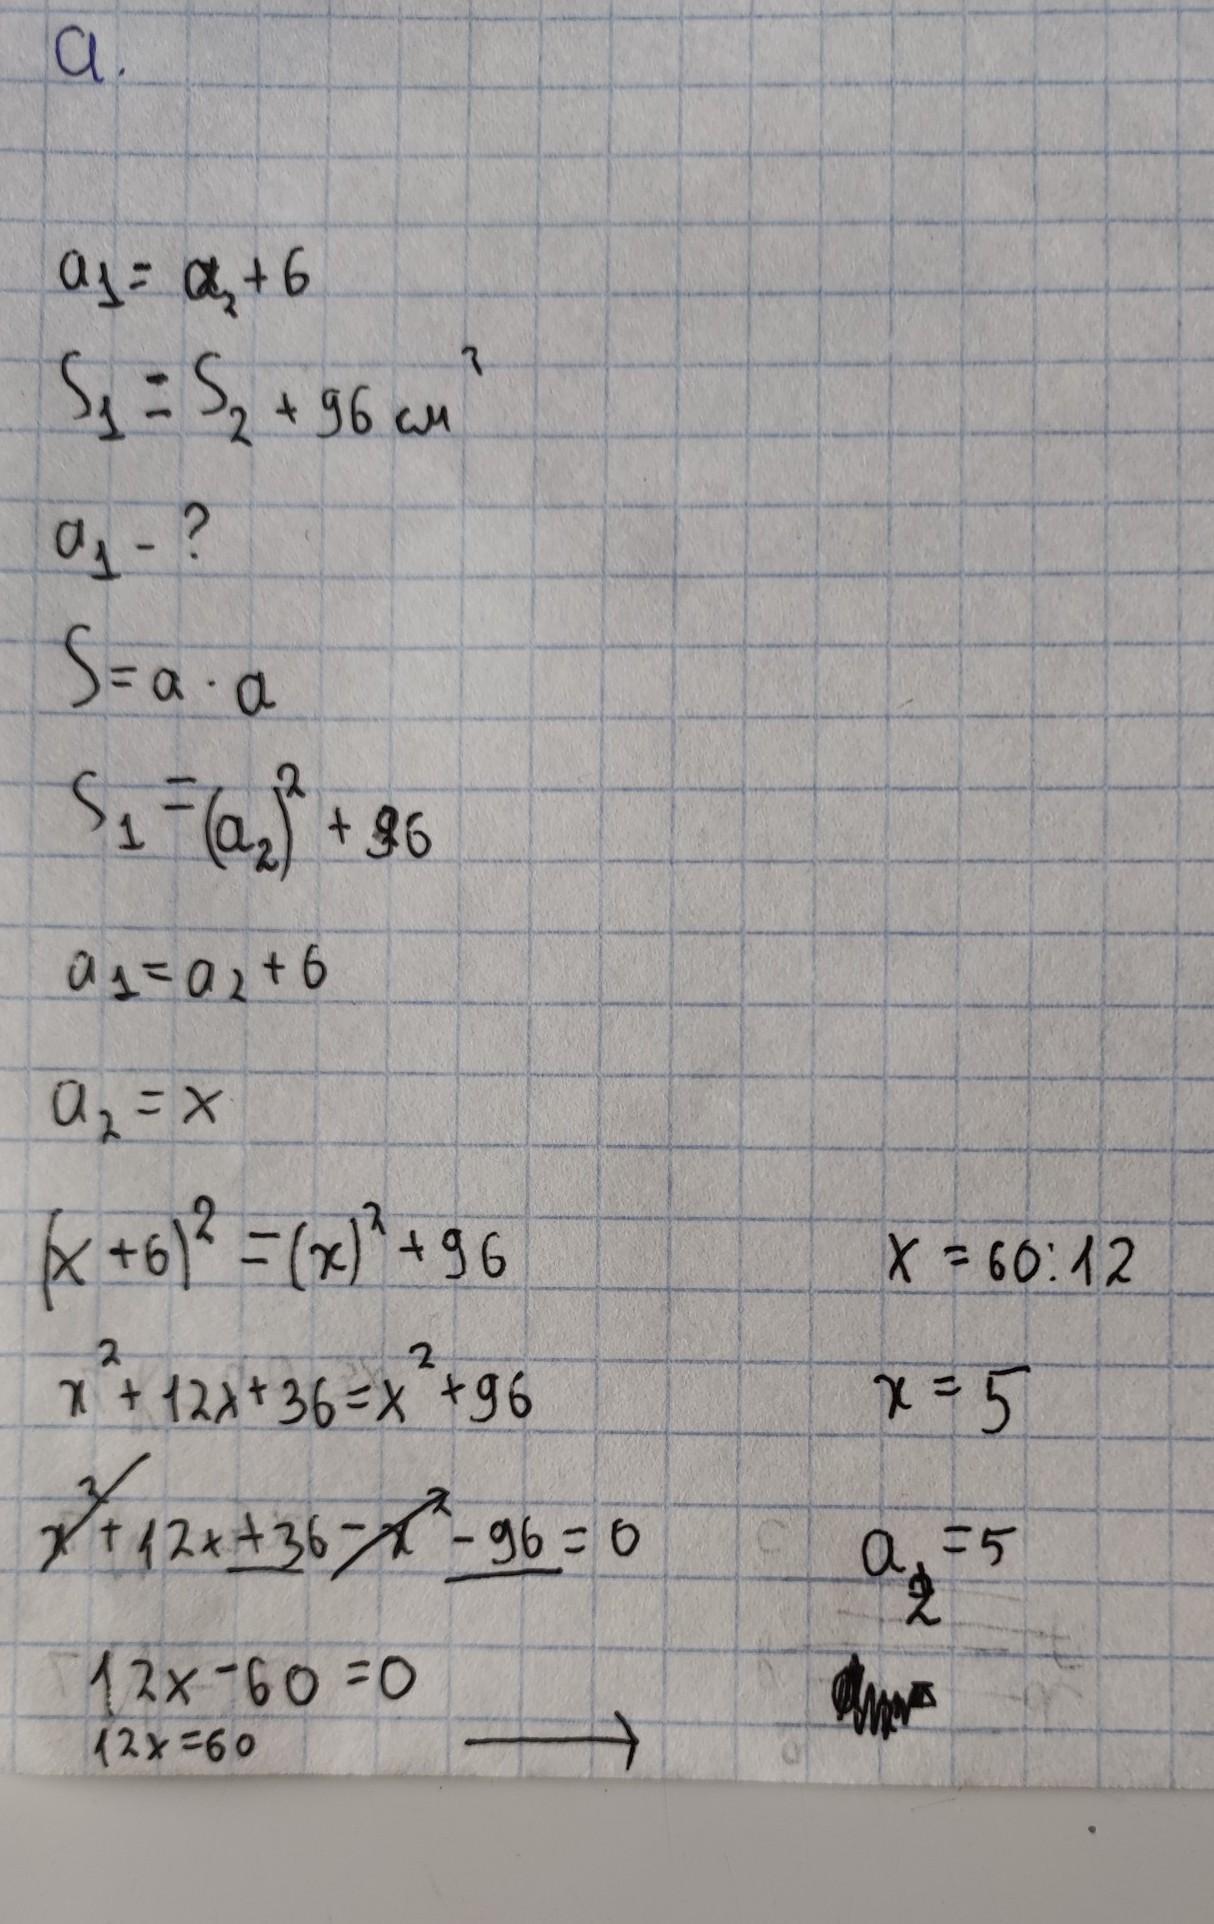 а.
a₁ = a₂ + 6
S₁ = S₂ + 96 см²
a₁ - ?
S = a · a
S₁ = (a₂)² + 96
a₁ = a₂ + 6
a₂ = x
(x + 6)² = (x)² + 96
x² + 12x + 36 = x² + 96
x² + 12x + 36 - x² - 96 = 0
12x - 60 = 0
12x = 60 →
x = 60 : 12
x = 5
a₂ = 5